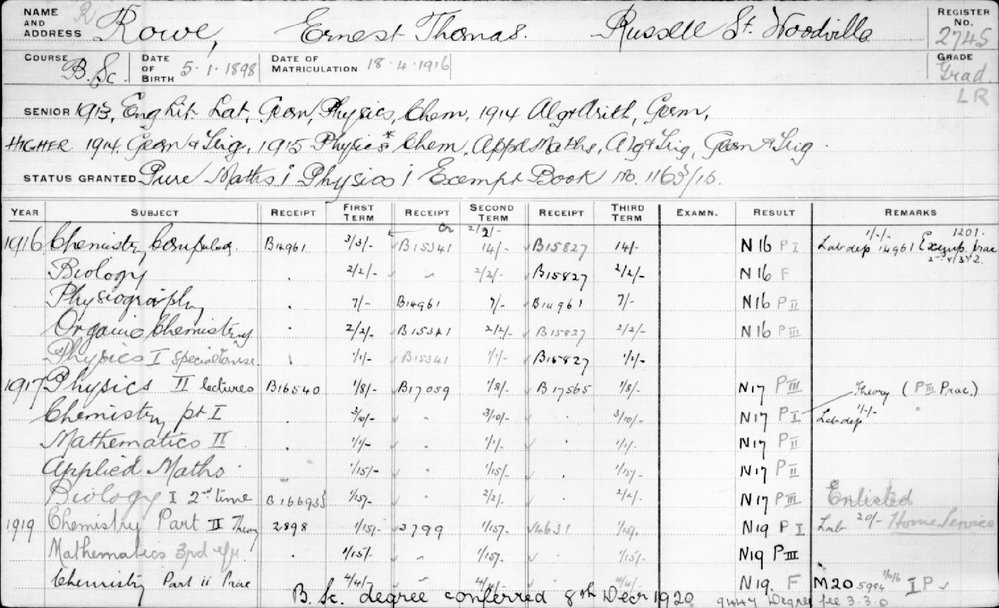 NAME AND ADDRESS R Rowe, Ernest Thomas. Russell St. Woodville REGISTER No. 2745
COURSE B.Sc. DATE OF BIRTH 5.1.1898 DATE OF MATRICULATION 18.4.1916 GRADE Grad. LR
SENIOR 1913, Eng Lit, Lat, Geom, Physics, Chem, 1914 Alg & Arith, Germ,
HIGHER 1914. Geom & Trig, 1915 Physics* Chem, Appd Maths, Alg & Trig, Geom & Trig.
STATUS GRANTED Pure Maths i Physics i Exempt Book No. 1163/16.
YEAR SUBJECT RECEIPT FIRST TERM RECEIPT SECOND TERM RECEIPT THIRD TERM EXAMN. RESULT REMARKS
1916 Chemistry B14961 3/3/- B15341 14/- B15827 14/- N16 P I Lab dep 1/-/- 14961 Exemp. Prac
Biology . 2/2/- " 2/2/- B15827 2/2/- N16 F
Physiography . 7/- B14961 7/- B14961 7/- N16 P II
Organic Chemistry . 2/2/- B15341 2/2/- B15827 2/2/- N16 P III
Physics I . 1/1/- B15341 1/1/- B15827 1/1/-
1917 Physics II lectures B16540 1/8/- B17059 1/8/- B17565 1/8/- N17 P III Theory (P III Prac.)
Chemistry pt I . 3/10/- " 3/10/- . 3/10/- N17 P I Lab dep 1/-/-
Mathematics II . 1/1/- " 1/1/- . 1/1/- N17 P II
Applied Maths. . 1/15/- " 1/15/- . 1/15/- N17 P II
Biology I 2nd time B16695 1/15/- 2/2/- . 2/2/- N17 P III Enlisted
1919 Chemistry Part II Theory 2898 1/15/- 3799 1/15/- 4631 1/15/- N19 P I Lab 20/- Home Service
Mathematics 3rd 1/15/- 1/15/- 1/15/- N19 P III
Chemistry Part ii Prac 4/4/- 4/4/- 4/4/- N19. F M20 5994 I P
B.Sc. degree conferred 8th Decr 1920 9447 Degree fee 3.3.0